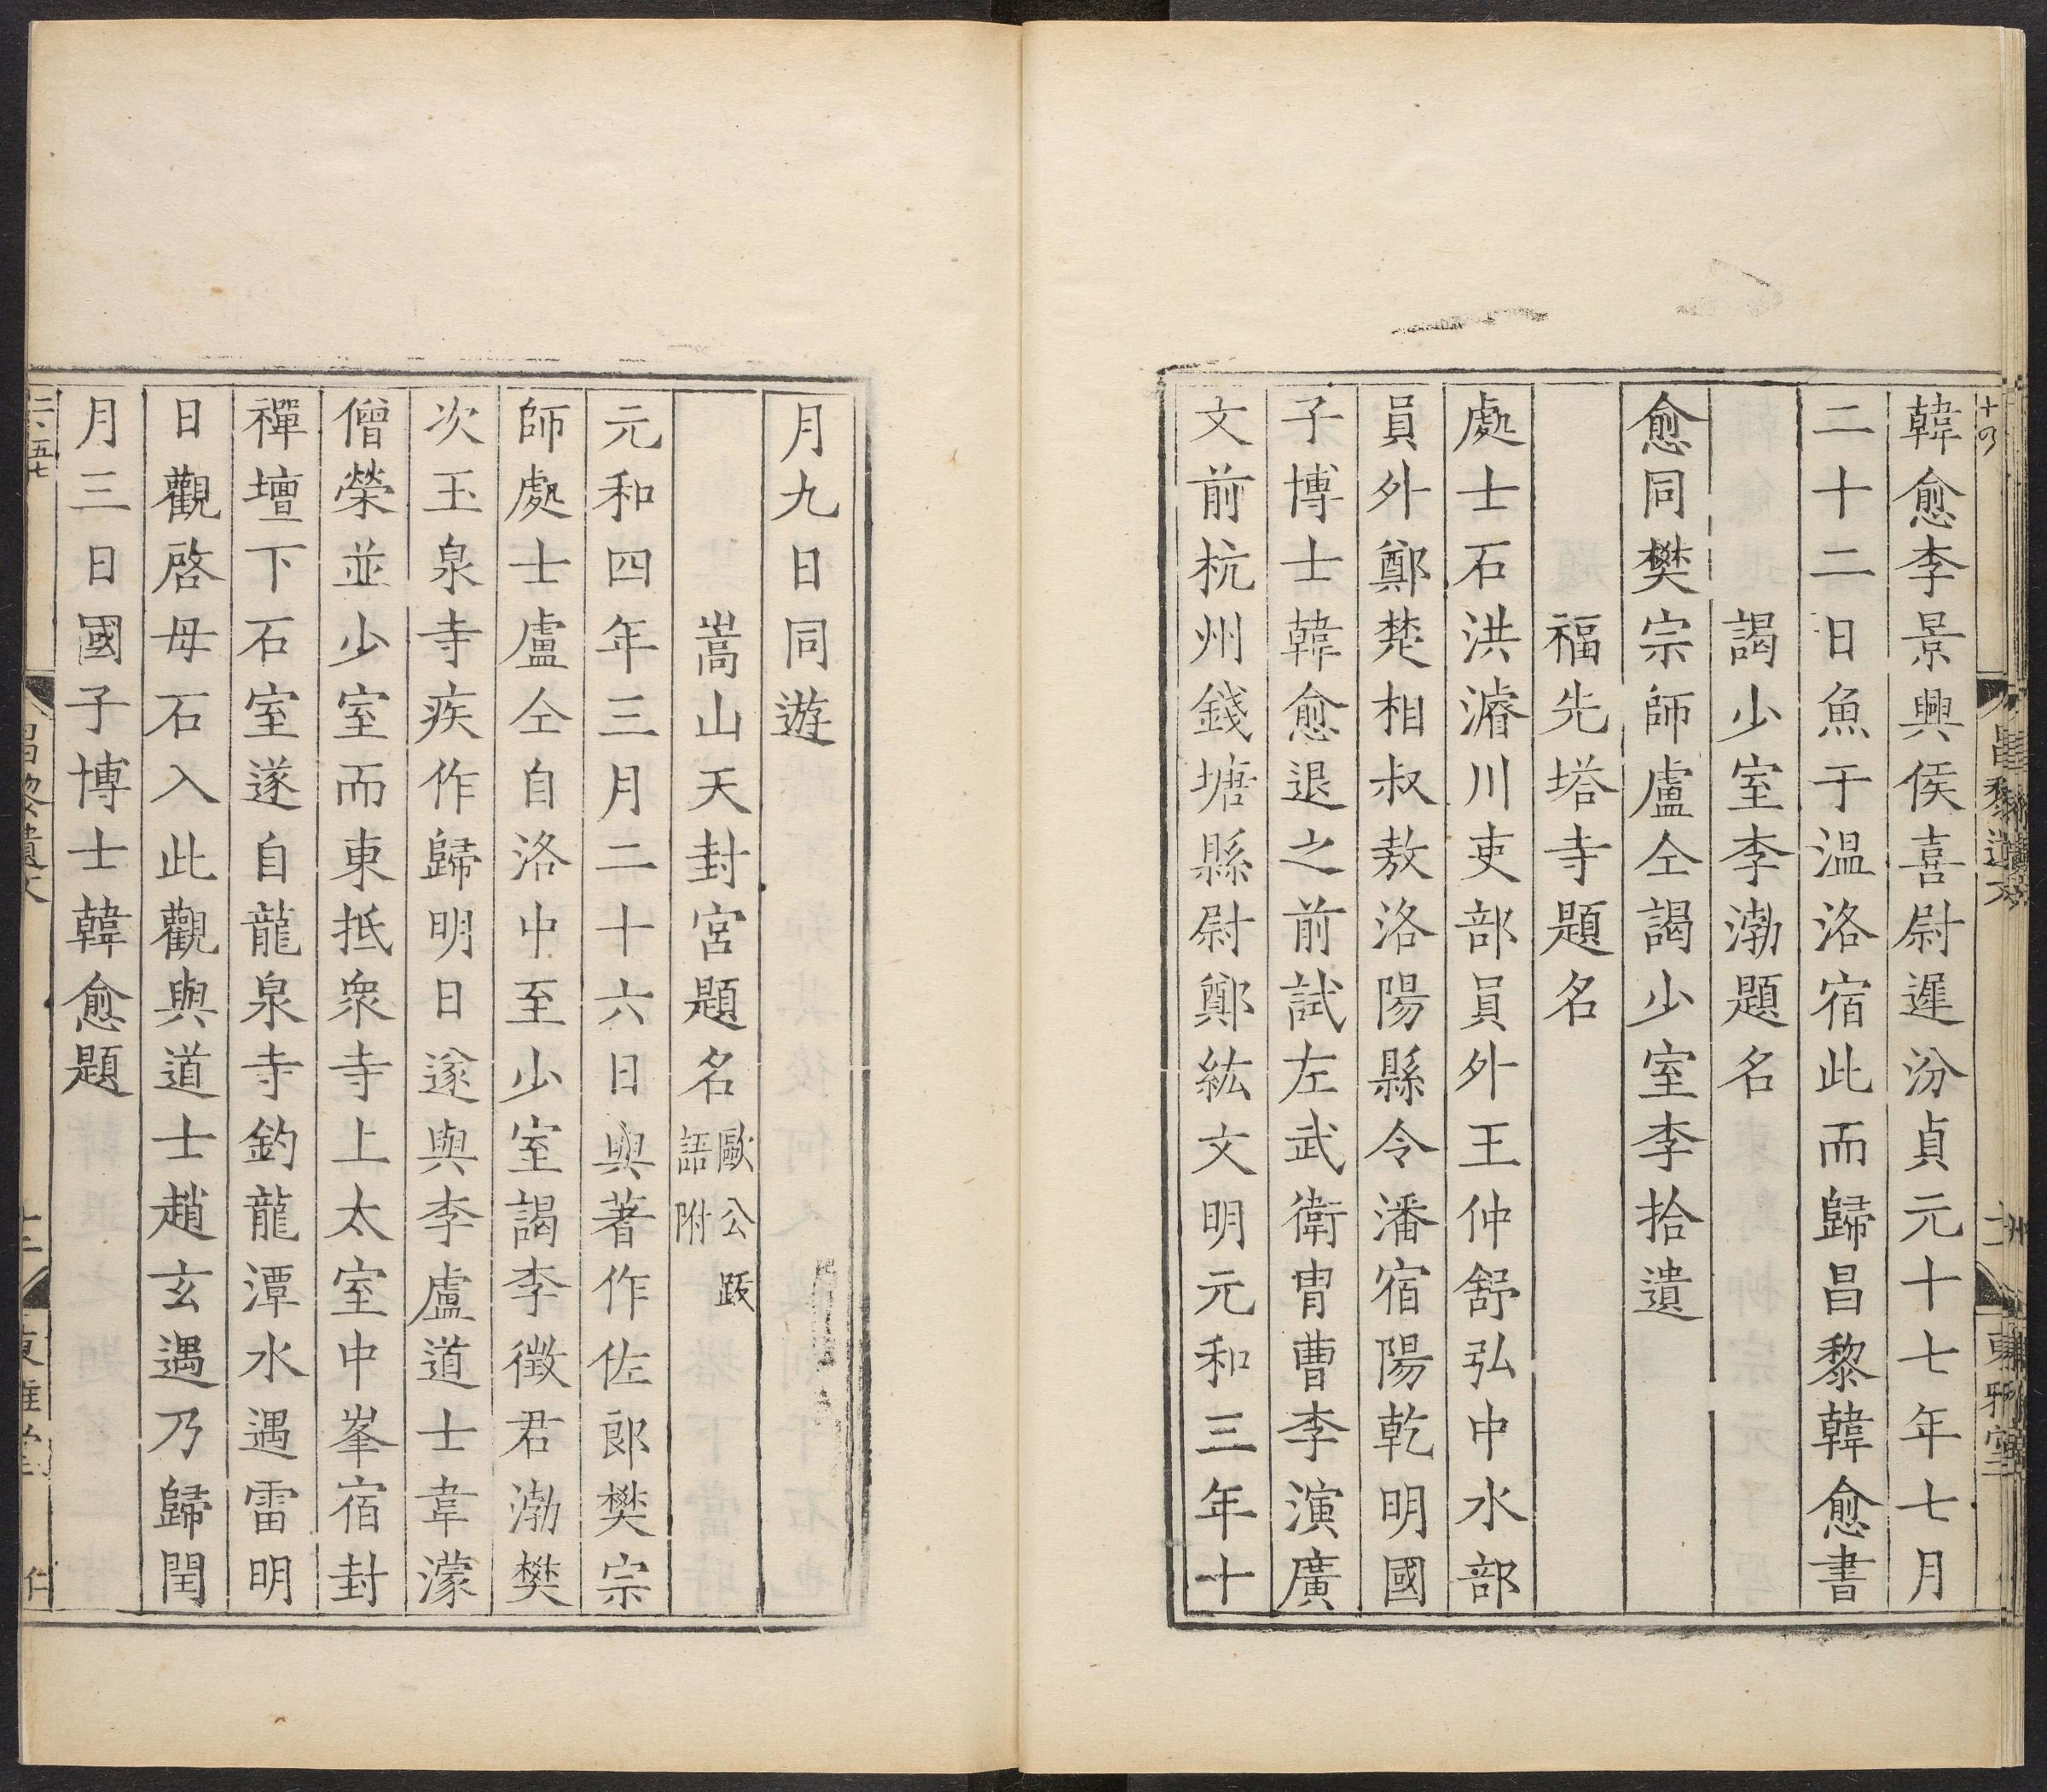 韓愈李景興侯喜尉遲汾貞元十七年七月
二十二日魚于温洛宿此而歸昌黎韓愈書
謁少室李渤題名
愈同樊宗師盧仝謁少室李拾遺
福先塔寺題名
處士石洪濬川吏部員外王仲舒弘中水部
員外鄭楚相叔敖洛陽縣令潘宿陽乾明國
子博士韓愈退之前試左武衛胄曹李演廣
文前杭州錢塘縣尉鄭紘文明元和三年十
月九日同遊
嵩山天封宮題名歐公跋語附
元和四年三月二十六日與著作佐郎樊宗
師處士盧仝自洛中至少室謁李徵君渤樊
次玉泉寺疾作歸明日遂與李盧道士韋濛
僧榮並少室而東抵衆寺上太室中峯宿封
禪壇下石室遂自龍泉寺釣龍潭水遇雷明
日觀啓母石入此觀與道士趙玄遇乃歸閏
月三日國子博士韓愈題
昌黎遺文
十二
東雅堂
仁